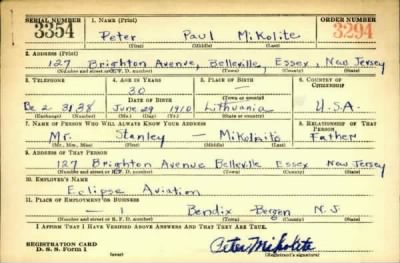 SERIAL NUMBER 1. NAME (Print) ORDER NUMBER
3354 Peter Paul Mikolite 3294
(First) (Middle) (Last)
2. ADDRESS (Print)
127 Brighton Avenue, Belleville, Essex, New Jersey
(Number and street or R. F. D. number) (Town) (County) (State)
3. TELEPHONE 4. AGE IN YEARS 5. PLACE OF BIRTH 6. COUNTRY OF CITIZENSHIP
30 —
DATE OF BIRTH (Town or county)
Be 2 3138 June 29 1910 Lithuania U.S.A.
(Exchange) (Number) (Mo.) (Day) (Yr.) (State or country)
7. NAME OF PERSON WHO WILL ALWAYS KNOW YOUR ADDRESS 8. RELATIONSHIP OF THAT PERSON
Mr. Stanley — Mikolnito Father
(Mr., Mrs., Miss) (First) (Middle) (Last)
9. ADDRESS OF THAT PERSON
127 Brighton Avenue Belleville Essex New Jersey
(Number and street or R. F. D. number) (Town) (County) (State)
10. EMPLOYER'S NAME
Eclipse Aviation
11. PLACE OF EMPLOYMENT OR BUSINESS
— 1 Bendix Bergen N. J.
(Number and street or R. F. D. number) (Town) (County) (State)
I AFFIRM THAT I HAVE VERIFIED ABOVE ANSWERS AND THAT THEY ARE TRUE.
REGISTRATION CARD
D. S. S. Form 1 (over) Peter Mikolite
(Registrant's signature)